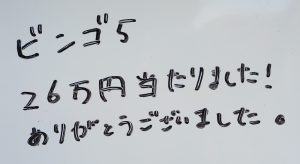 ビンゴ5
26万円当たりました!
ありがとうございました。